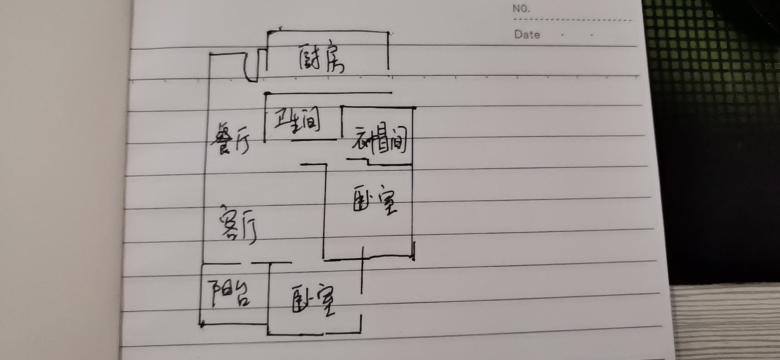 NO.
Date
厨房
卫生间
衣帽间
餐厅
卧室
客厅
阳台
卧室